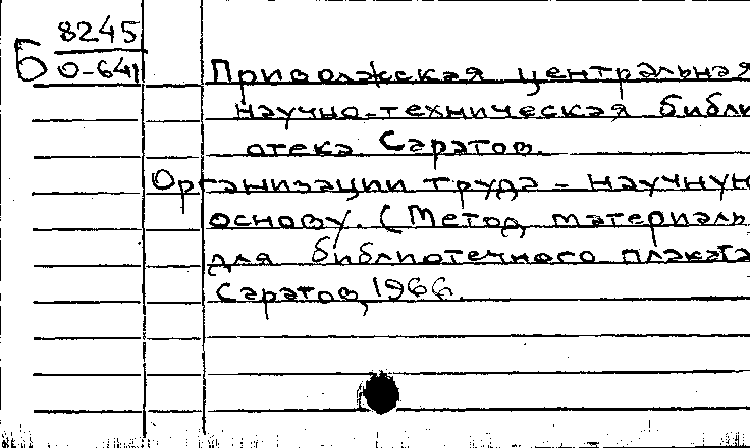 8245
Б О-641
Приволжская центральная
научно-техническая библи
отека Саратов.
Организации труда - научную
основу. (Метод. материалы
для библиотечного плаката
Саратов, 1966.